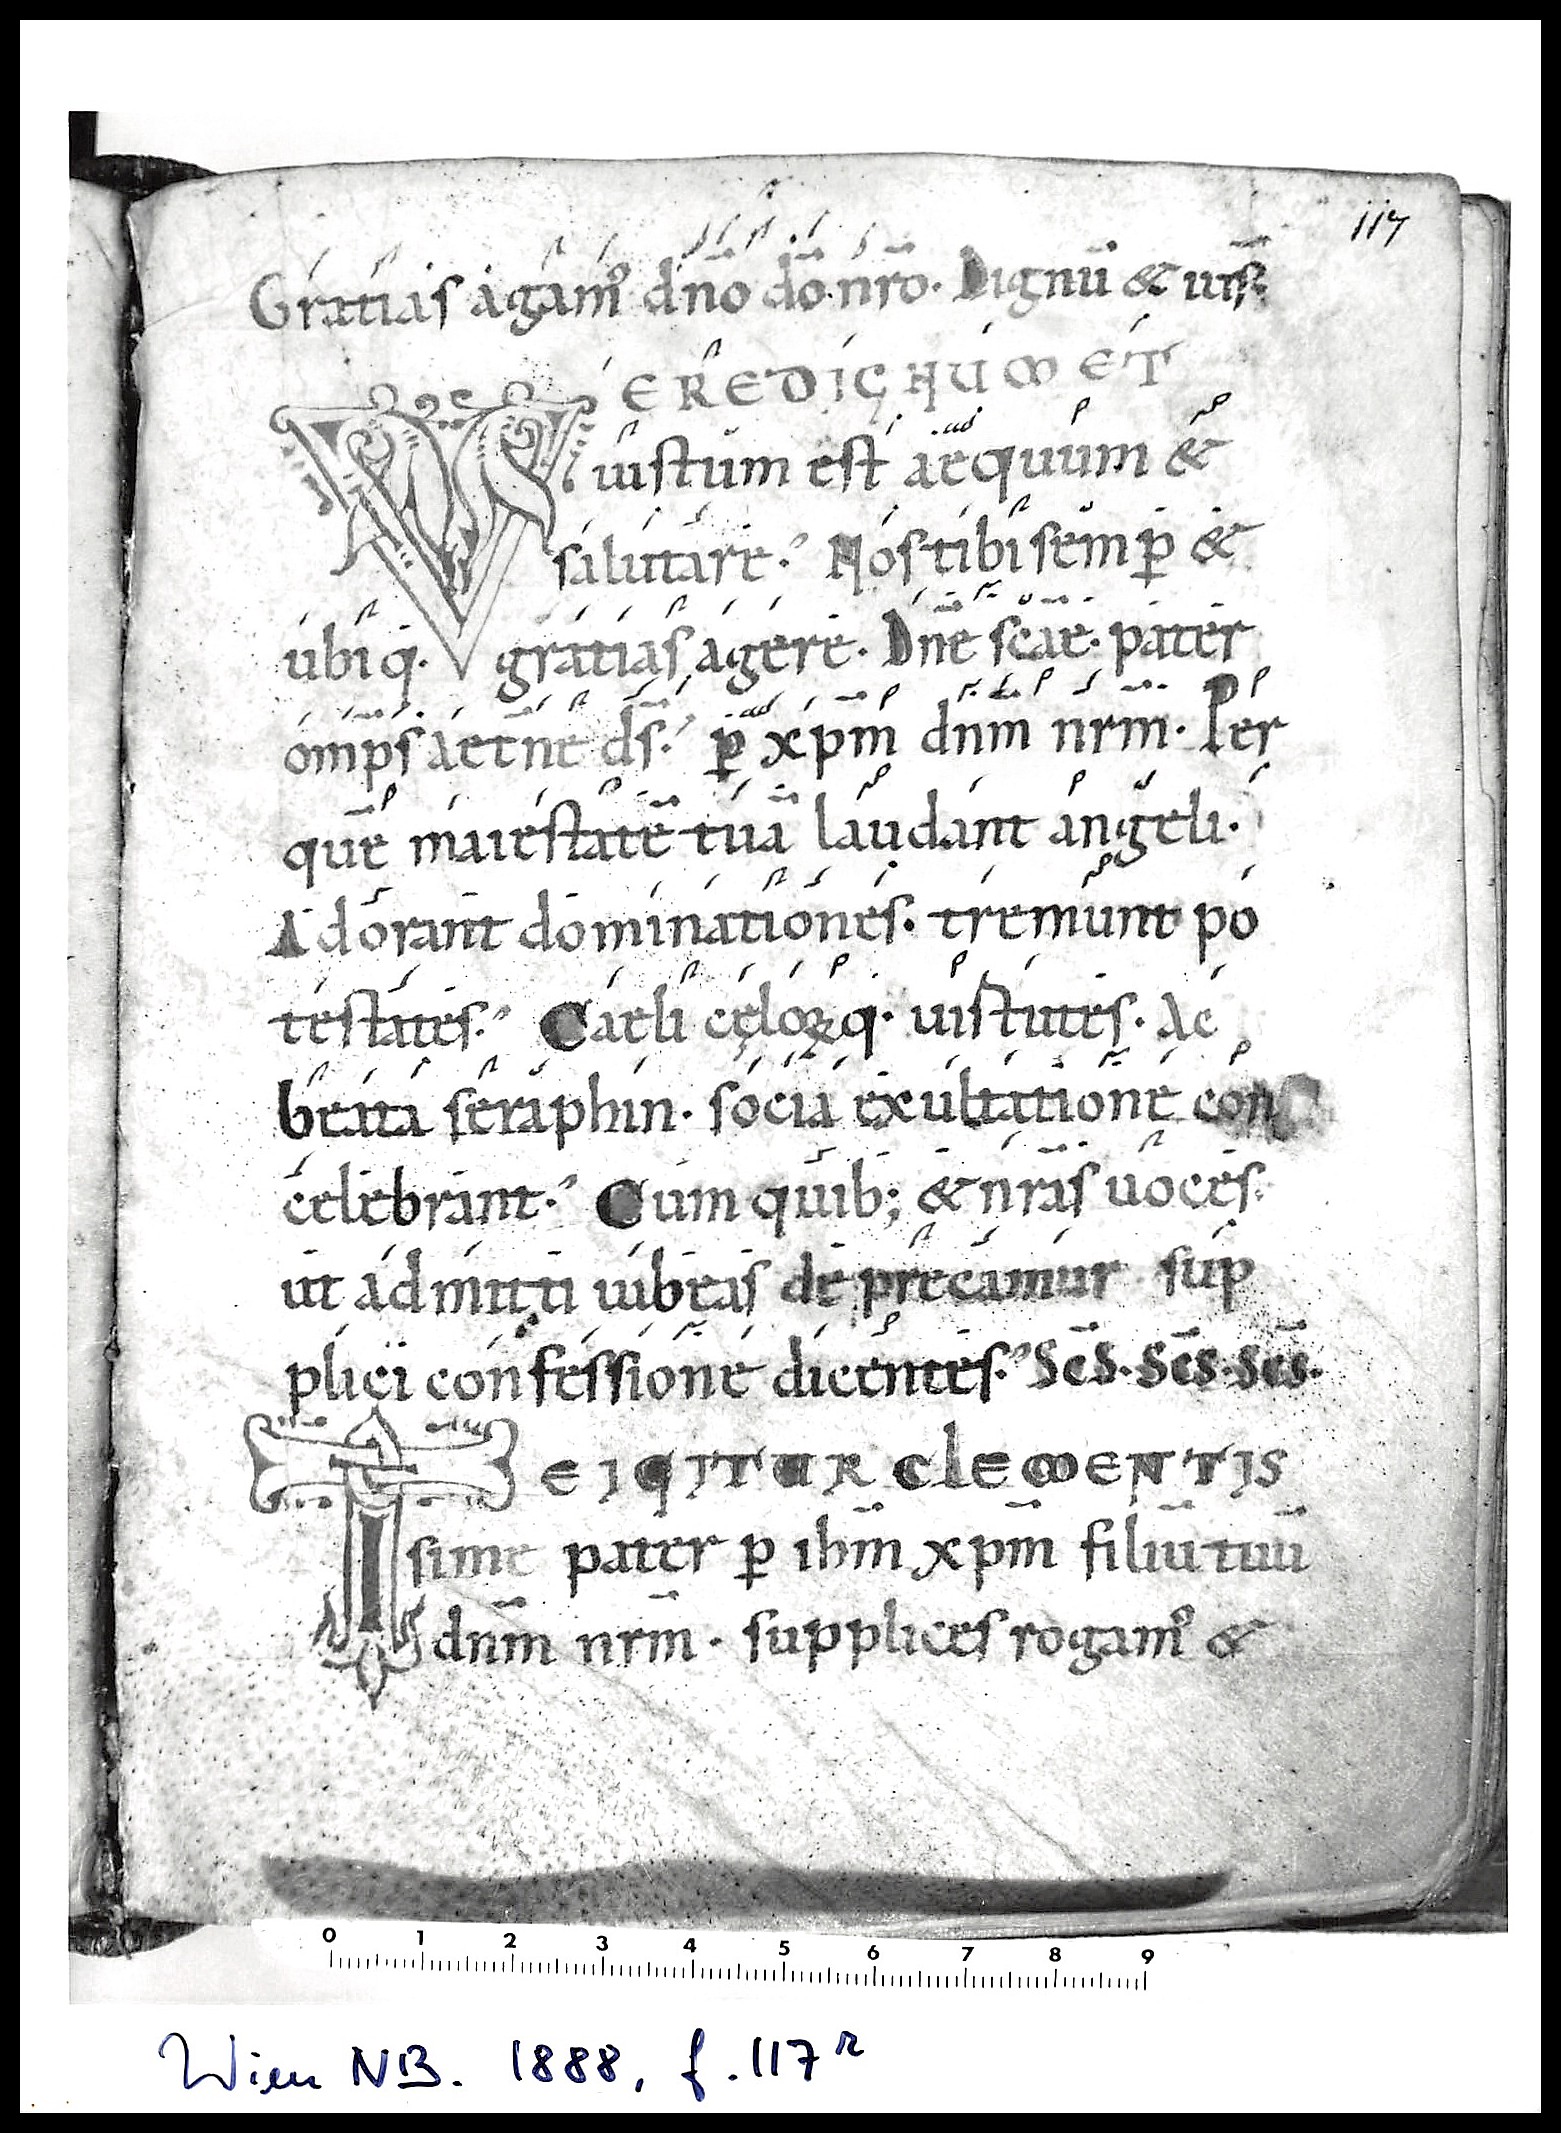 117
Gratias agam᾽ dn̄o dō. nr̄o. Dignū & ius̄
VEREDIGNUM ET
iustum est aequum &
salutare. Nos tibi semp̄ &
ubiq. gratias agere. Dn̄e sc̄ae. pater
om̄ps aet̄ne ds̄. p̄ xpm̄ dn̄m nr̄m. Per
quē maiestatē tuā laudant angeli.
Adorant dominationes. tremunt po
testates. Caeli cęloꝝq. uirtutes. Ac
beata seraphin. socia exultatione con
celebrant. Cum quib; & nr̄as uoces
ut admitti iubeas deprecamur sup
plici confessione dicentes. Sc̄s. Sc̄s. Sc̄s.
TEIGITUR CLEMENTIS
sime pater p̄ ihm̄ xpm̄ filiū tuū
dn̄m nr̄m. supplices rogam᾽ &
0 1 2 3 4 5 6 7 8 9
Wien NB. 1888, f. 117r